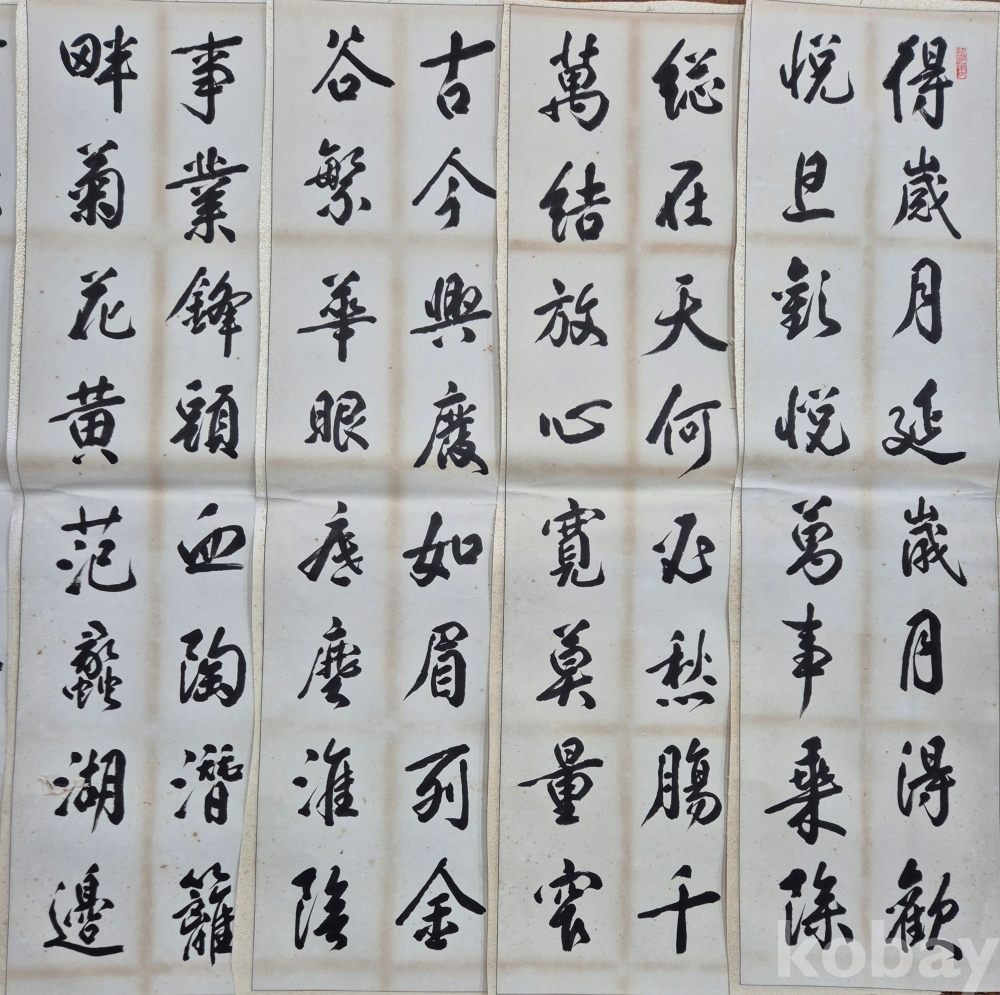 得歲月延歲月得歡
悅且歡悅萬事乗除
総在天何必愁腸千
萬結放心寬莫量窄
古今興廢如眉列金
谷繁華眼底塵淮陰
事業鋒頭血陶潛籬
畔菊花黃范蠡湖邊
kobay